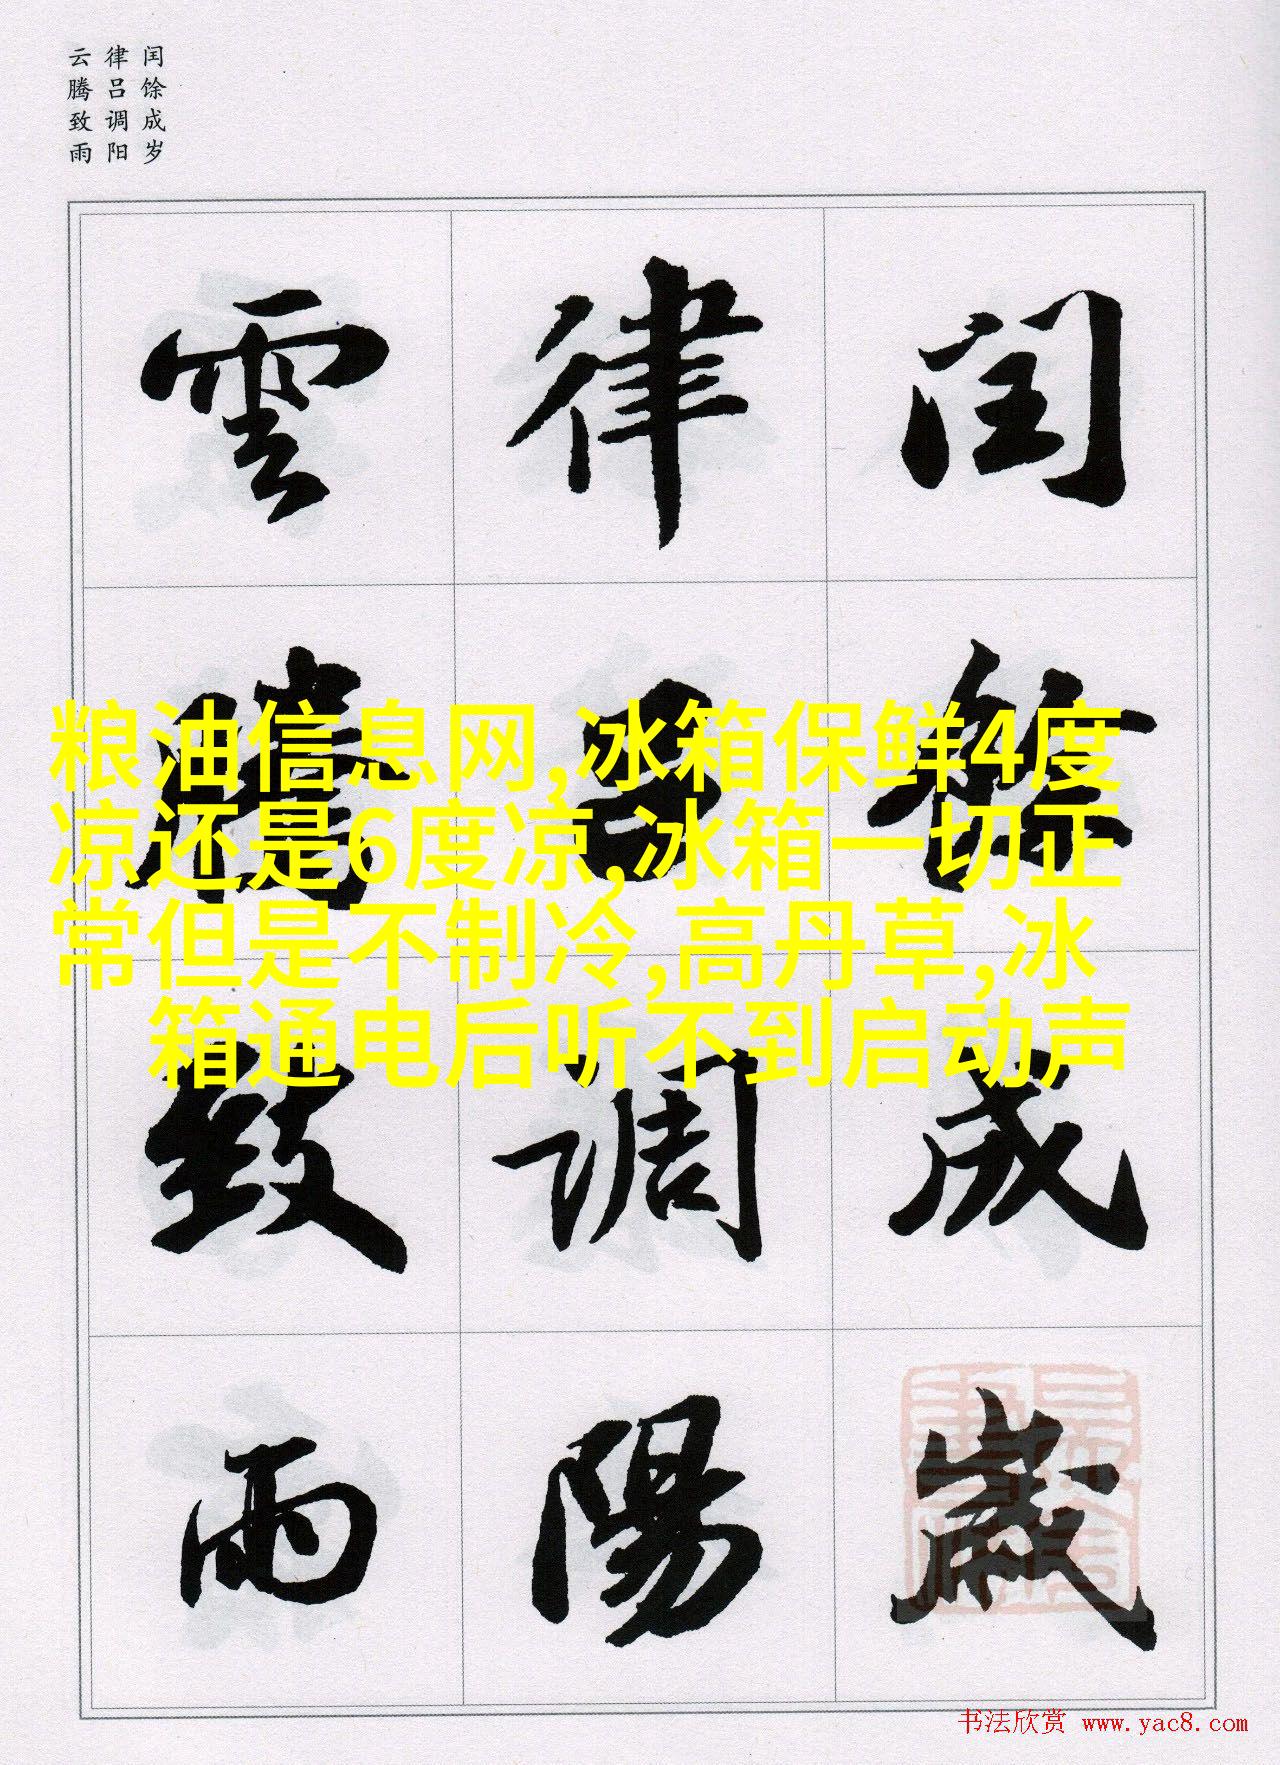 闰馀成岁
律吕调阳
云腾致雨
闰馀成歲
律吕調陽
雲騰致雨
粮油信息网,冰箱保鲜4度
凉还是6度凉,冰箱一切正
常但是不制冷,高丹草,冰
箱通电后听不到启动声
书法欣赏 www.yac8.com